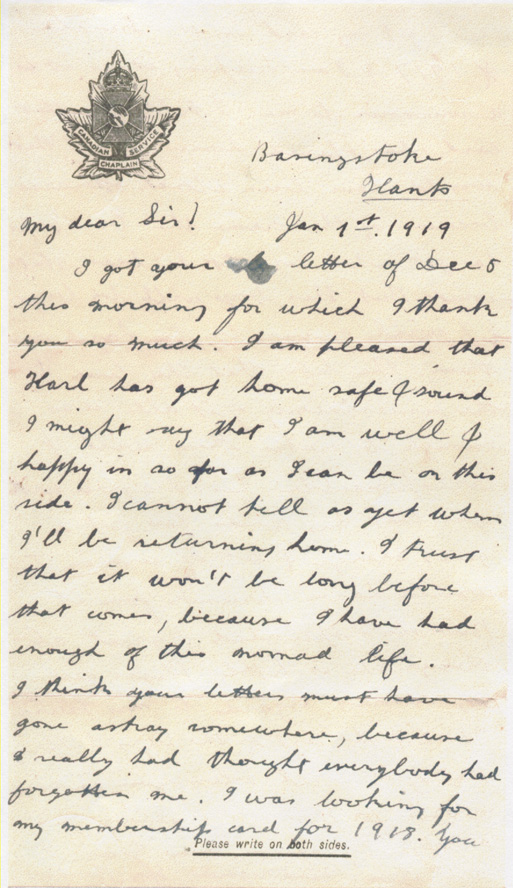 CANADIAN
SERVICE
CHAPLAIN
Basingstoke
Hants
My dear Sir! Jan 1st. 1919
I got your letter of Dec 5
this morning for which I thank
you so much. I am pleased that
Harl has got home safe & sound
I might say that I am well &
happy in so far as I can be on this
side. I cannot tell as yet when
I'll be returning home. I trust
that it won't be long before
that comes, because I have had
enough of this nomad life.
I think your letters must have
gone astray somewhere, because
I really had thought everybody had
forgotten me. I was looking for
my membership card for 1918. You
Please write on both sides.